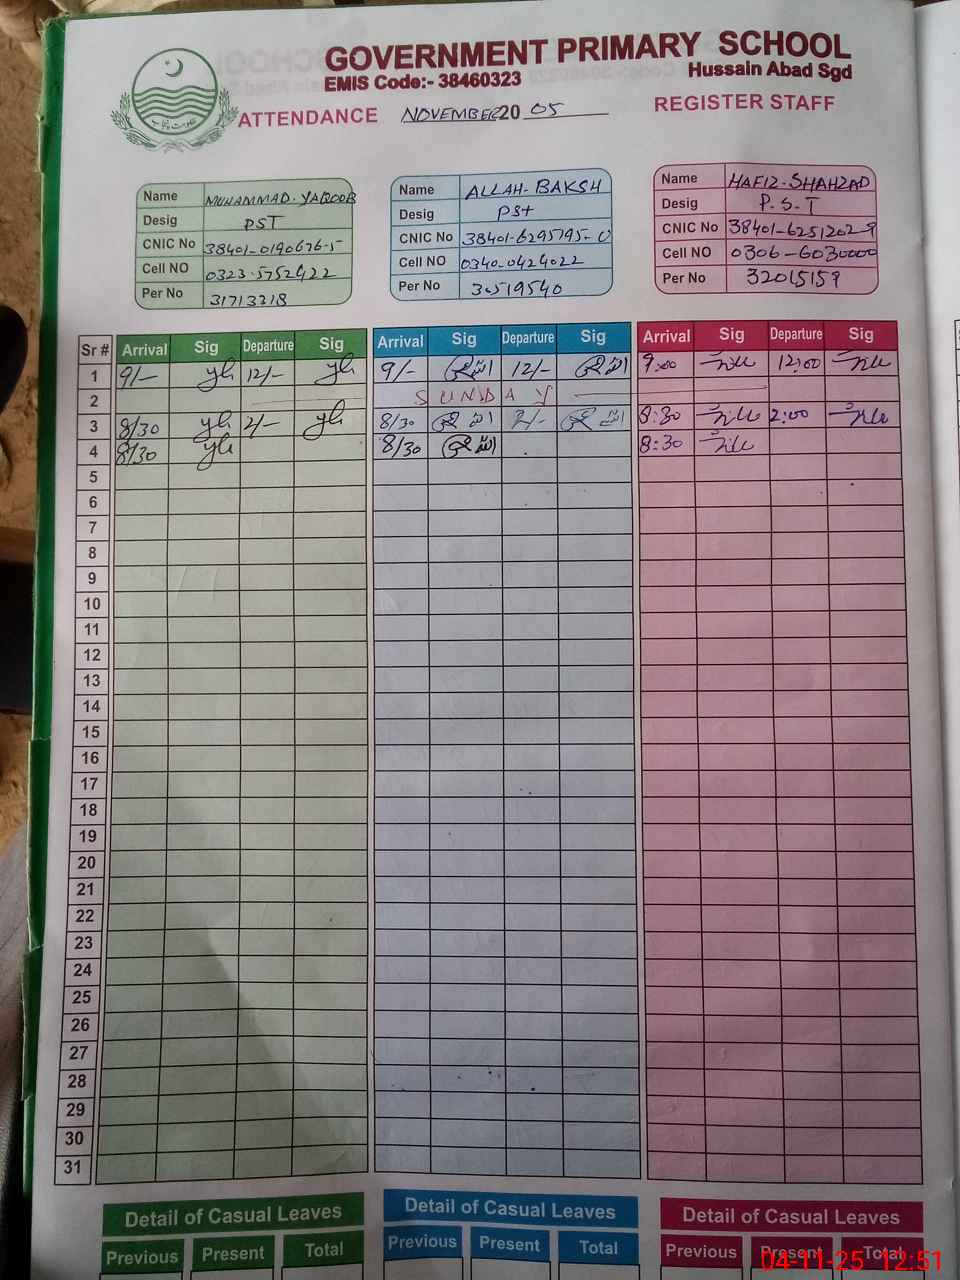 GOVERNMENT PRIMARY SCHOOL
EMIS Code:- 38460323 Hussain Abad Sgd
ATTENDANCE NOVEMBER 20 05 REGISTER STAFF
Name MUHAMMAD-YAQOOB
Desig PST
CNIC No 38401-0190676-5
Cell NO 0323-5752422
Per No 31713318
Name ALLAH-BAKSH
Desig PST
CNIC No 38401-6295795-0
Cell NO 0340-0424022
Per No 30519540
Name HAFIZ-SHAHZAD
Desig P.S.T
CNIC No 38401-6251202-9
Cell NO 0306-6030000
Per No 32015159
Sr # Arrival Sig Departure Sig Arrival Sig Departure Sig Arrival Sig Departure Sig
1 9/- 12/- 9/- 12/- 9:00 12:00
2 SUNDAY
3 8/30 2/- 8/30 2/- 8:30 2:00
4 8/30 8/30 8:30
5
6
7
8
9
10
11
12
13
14
15
16
17
18
19
20
21
22
23
24
25
26
27
28
29
30
31
Detail of Casual Leaves Detail of Casual Leaves Detail of Casual Leaves
Previous Present Total Previous Present Total Previous Present Total
04-11-25 12:51